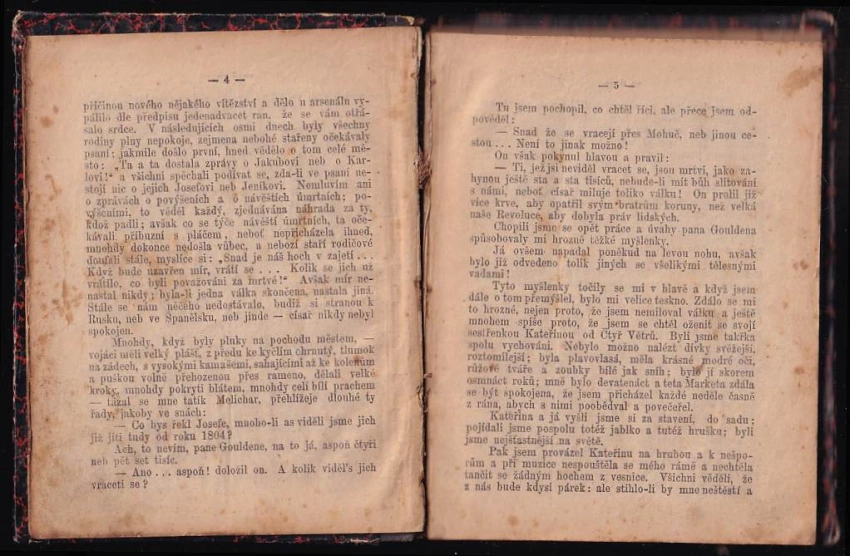 — 4 —
příčinou nového nějakého vítězství a dělo u arsenálu vy-
pálilo dle předpisu jedenadvacet ran, že se vám otřá-
salo srdce. V následujících osmi dnech byly všechny
rodiny plny nepokoje, zejmena nebohé stařeny očekávaly
psaní; jakmile došlo první, hned vědělo o tom celé mě-
sto: „Ta a ta dostala zprávy o Jakubovi neb o Kar-
lovi!“ a všichni spěchali podívat se, zda-li ve psaní ne-
stojí nic o jejich Josefovi neb Jeníkovi. Nemluvím ani
o zprávách o povýšeních a o návěštích úmrtních; po-
výšeními, to věděl každý, zjednávána náhrada za ty,
kdož padli; avšak co se týče návěští úmrtních, ta oče-
kávali příbuzní s pláčem, neboť nepřicházela ihned,
mnohdy dokonce nedošla vůbec, a nebozí staří rodičové
doufali stále, myslíce si: „Snad je náš hoch v zajetí . . .
Když bude uzavřen mír, vrátí se . . . Kolik se jich už
vrátilo, co byli považováni za mrtvé!“ Avšak mír ne-
nastal nikdy; byla-li jedna válka skončena, nastala jiná.
Stále se nám něčeho nedostávalo, budiž si stranou k
Rusku, neb ve Španělsku, neb jinde — císař nikdy nebyl
spokojen.
Mnohdy, když byly pluky na pochodu městem, —
vojáci měli velký plášť, z předu ke kyčlím chrnutý, tlumok
na zádech, s vysokými kamašemi, sahajícími až ke kolenům
a puškou volně přehozenou přes rameno, dělali velké
kroky, mnohdy pokryti blátem, mnohdy celí bílí prachem
— tázal se mne tatík Melichar, přehlížeje dlouhé ty
řady, jakoby ve snách:
— Co bys řekl Josefe, mnoho-li as viděli jsme jich
již jíti tudy od roku 1804?
Ach, to nevím, pane Gouldene, na to já, aspoň čtyři
neb pět set tisíc.
— Ano . . . aspoň! doložil on. A kolik viděl's jich
vraceti se?
— 5 —
Tu jsem pochopil, co chtěl říci, ale přece jsem od-
pověděl:
— Snad že se vracejí přes Mohuč, neb jinou ce-
stou . . . Není to jinak možno!
On však pokynul hlavou a pravil:
— Ti, jež jsi neviděl vracet se, jsou mrtvi, jako za-
hynou ještě sta a sta tisíců, nebude-li mít bůh slitování
s námi, neboť císař miluje toliko válku! On prolil již
více krve, aby opatřil svým bratrům koruny, než velká
naše Revoluce, aby dobyla práv lidských.
Chopili jsme se opět práce a úvahy pana Gouldena
způsobovaly mi hrozně těžké myšlenky.
Já ovšem napadal poněkud na levou nohu, avšak
bylo již odvedeno tolik jiných se všelikými tělesnými
vadami!
Tyto myšlenky točily se mi v hlavě a když jsem
dále o tom přemýšlel, bylo mi velice teskno. Zdálo se mi
to hrozné, nejen proto, že jsem nemiloval válku a ještě
mnohem spíše proto, že jsem se chtěl oženit se svojí
sestřenkou Kateřinou od Čtyř Větrů. Byli jsme takřka
spolu vychováni. Nebylo možno nalézt dívky svěžejší,
roztomilejší; byla plavovlasá, měla krásné modré oči,
růžové tváře a zoubky bílé jak sníh; bylo jí skorem
osmnáct roků; mně bylo devatenáct a teta Marketa zdála
se být spokojena, že jsem přicházel každé neděle časně
z rána, abych s nimi poobědval a povečeřel.
Kateřina a já vyšli jsme si za stavení, do sadu;
pojídali jsme pospolu totéž jablko a tutéž hrušku; byli
jsme nejšťastnější na světě.
Pak jsem provázel Kateřinu na hrubou a k nešpo-
rům a při muzice nespouštěla se mého rámě a nechtěla
tančit se žádným hochem z vesnice. Všichni věděli, že
z nás bude kdysi párek: ale stihlo-li by mne neštěstí a